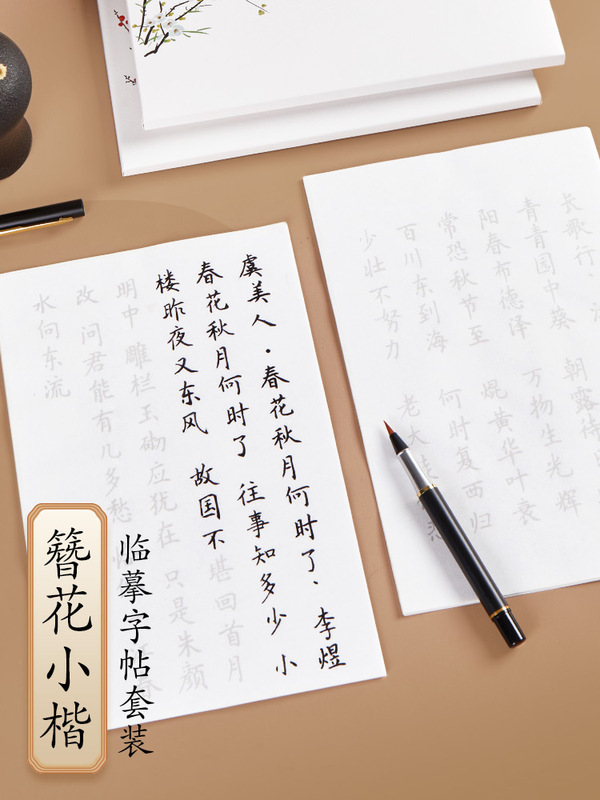 虞美人·春花秋月何时了、李煜
春花秋月何时了 往事知多少 小
楼昨夜又东风 故国不堪回首月
明中 雕栏玉砌应犹在 只是朱颜
改 问君能有几多愁 春
水向东流
长歌行
青青园中葵 朝露待
阳春布德泽 万物生光辉
常恐秋节至 焜黄华叶衰
百川东到海 何时复西归
少壮不努力 老大 悲
簪花小楷
临摹字帖套装